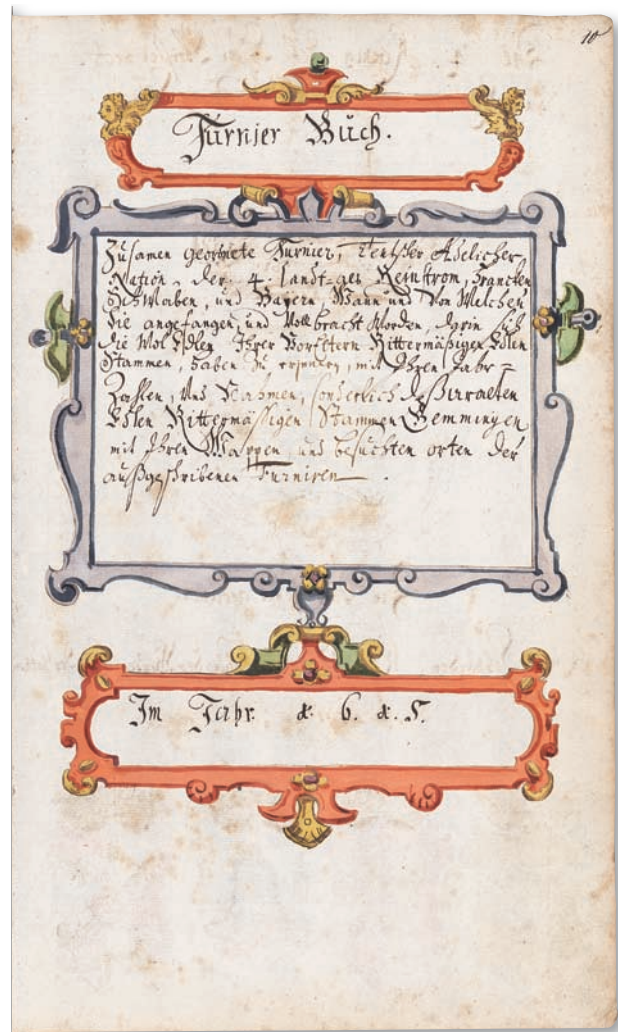 10
Turnier Buch.
Zusamen geordnete Turnier, Teutscher Adelicher
Nation, der 4. Landt=
Reinstrom, Francken
Schwaben, und Bayern, Wann und Von Welchen
die angefangen, und Vollbracht Worden, darin sich
die Wol Edlen Ihrer Vor Eltern Rittermäßigen Edlen
Stammen, haben zu mit Ihren Jahr=
Zahlen, Und Nahmen, sonderlich deß
Edlen Rittermässigen Stammen Gemmingen
mit Ihren Wappen und besuchten orten der
außgeschribenen Turniren.
Im Jahr. &. 6. &. 5.